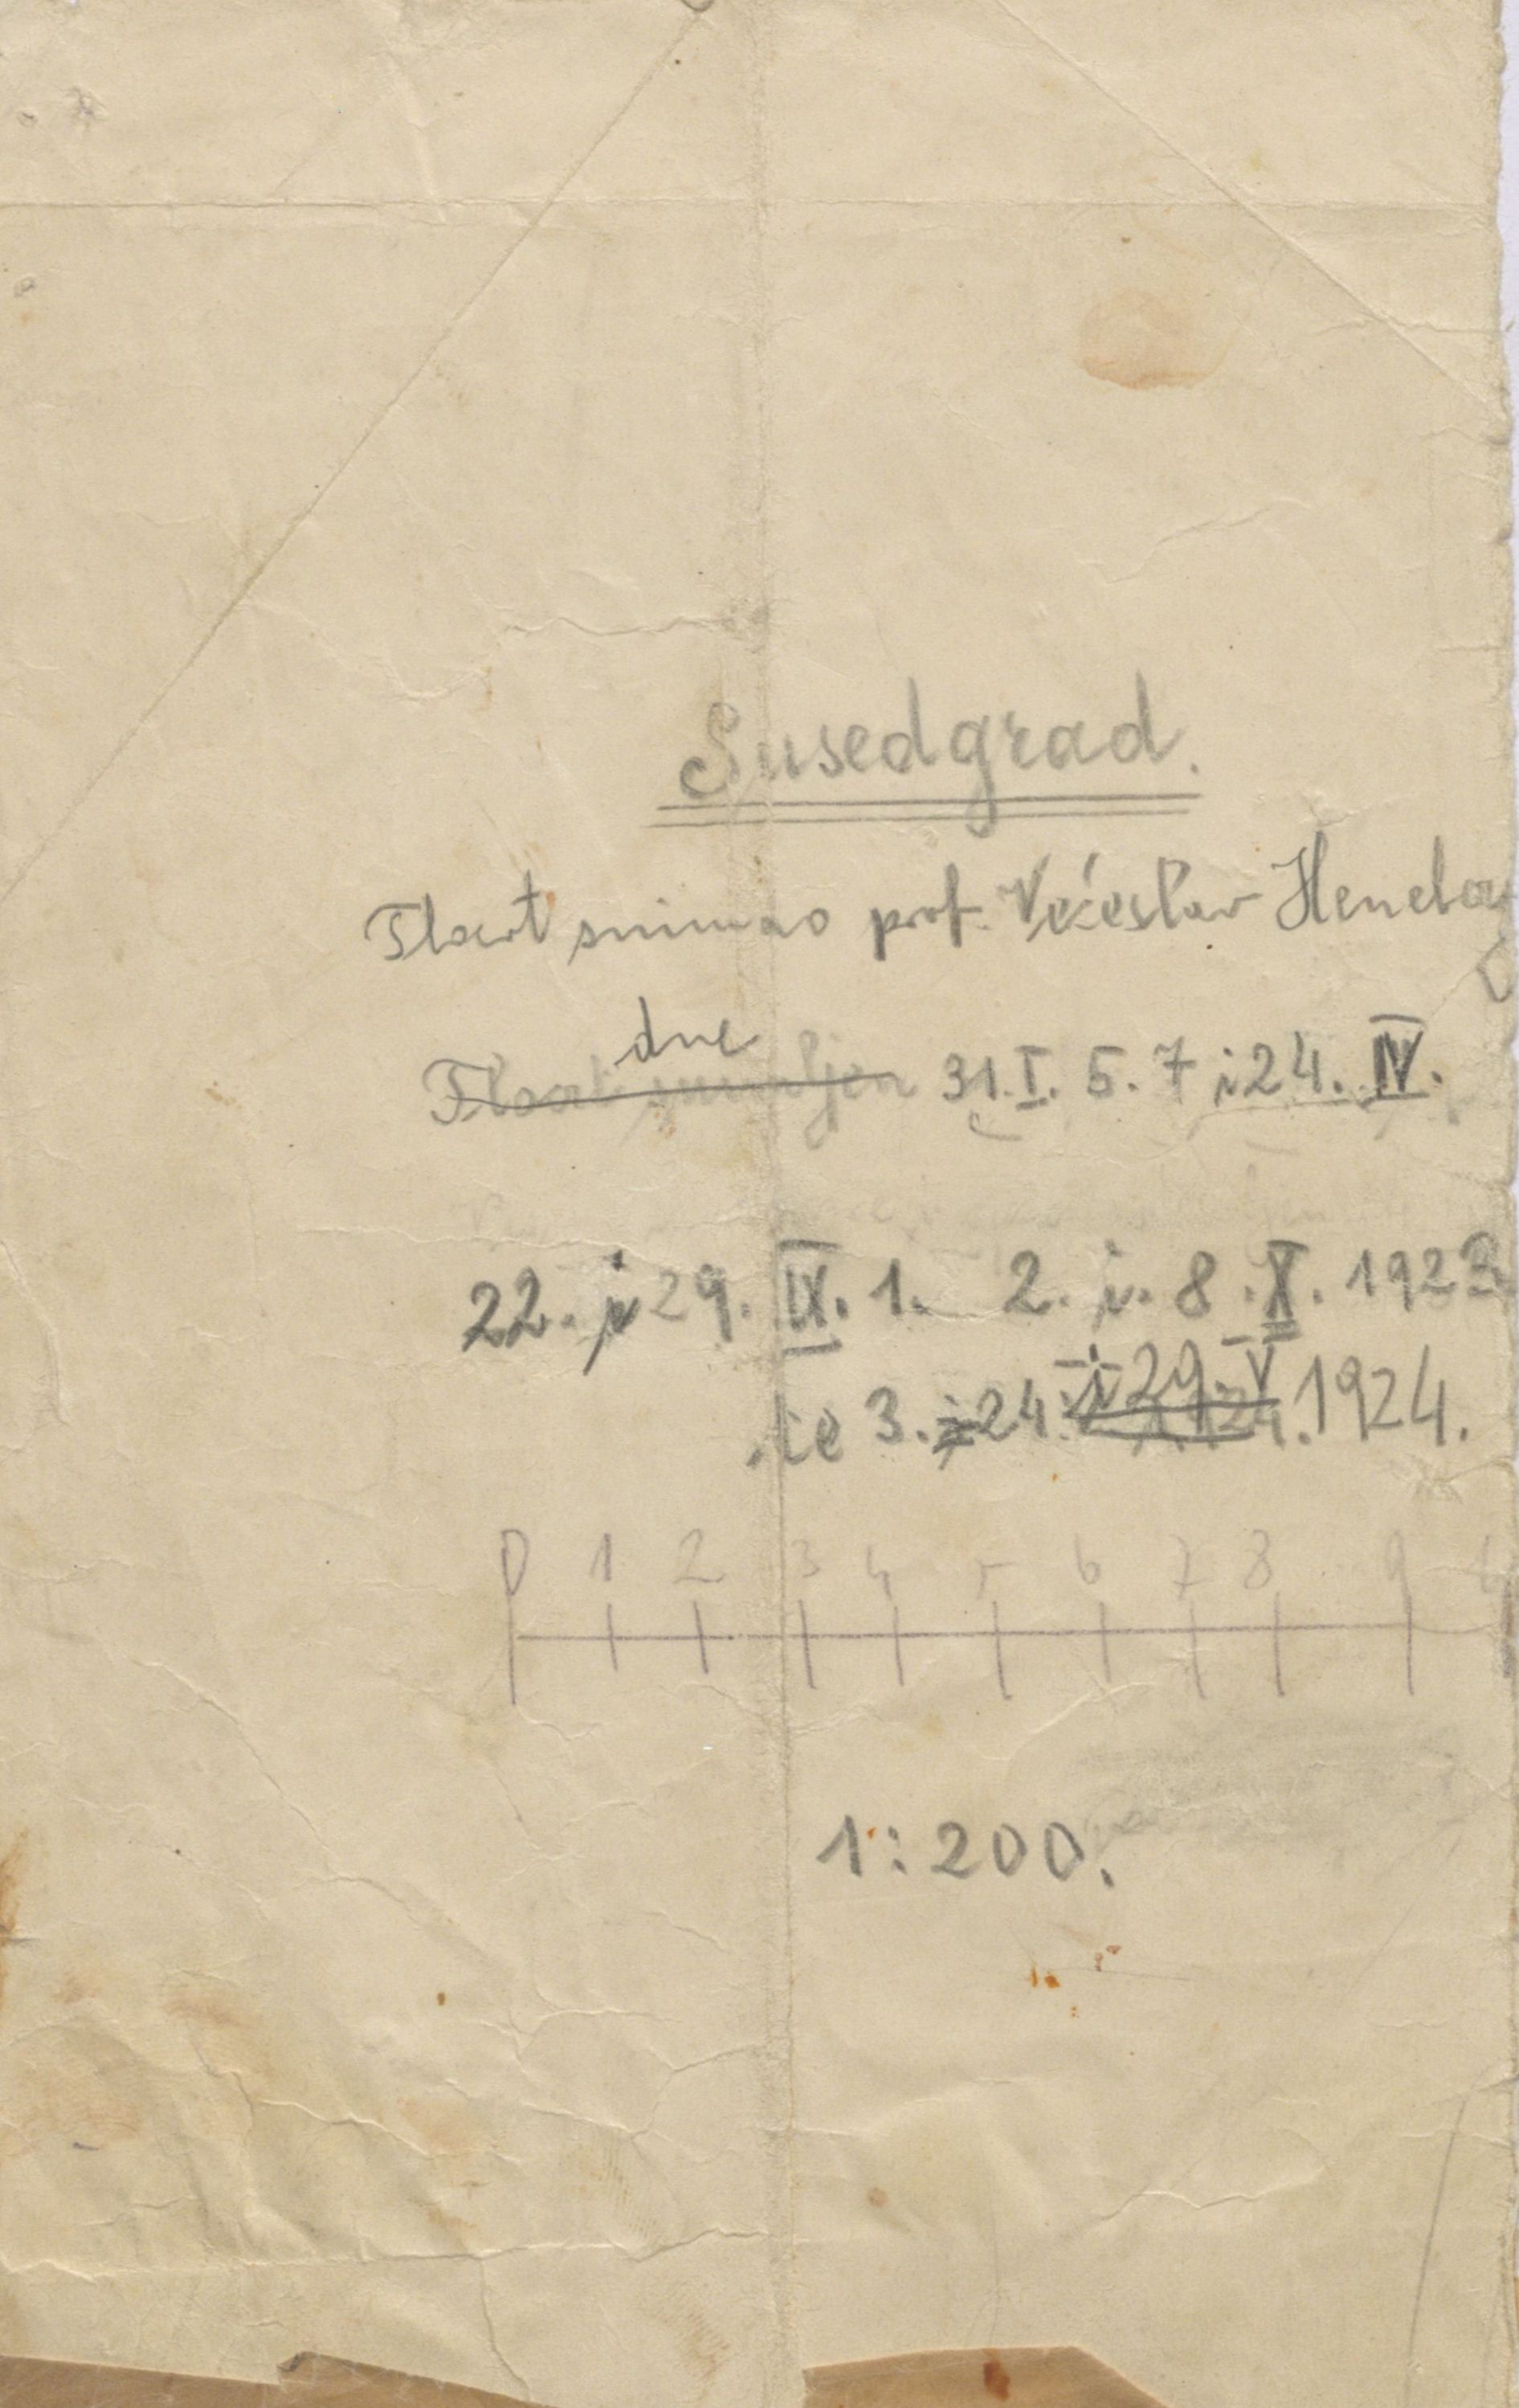 Susedgrad.
Tlocrt snimao prof. Većeslav Henebe
dne
Tlocrt snimljen 31. I. 5. 7 i 24. IV.
22. i 29. IX. 1. 2. i. 8. X. 1923
te 3. i 24. i 29. V 1924.
0 1 2 3 4 5 6 7 8 9
1:200.